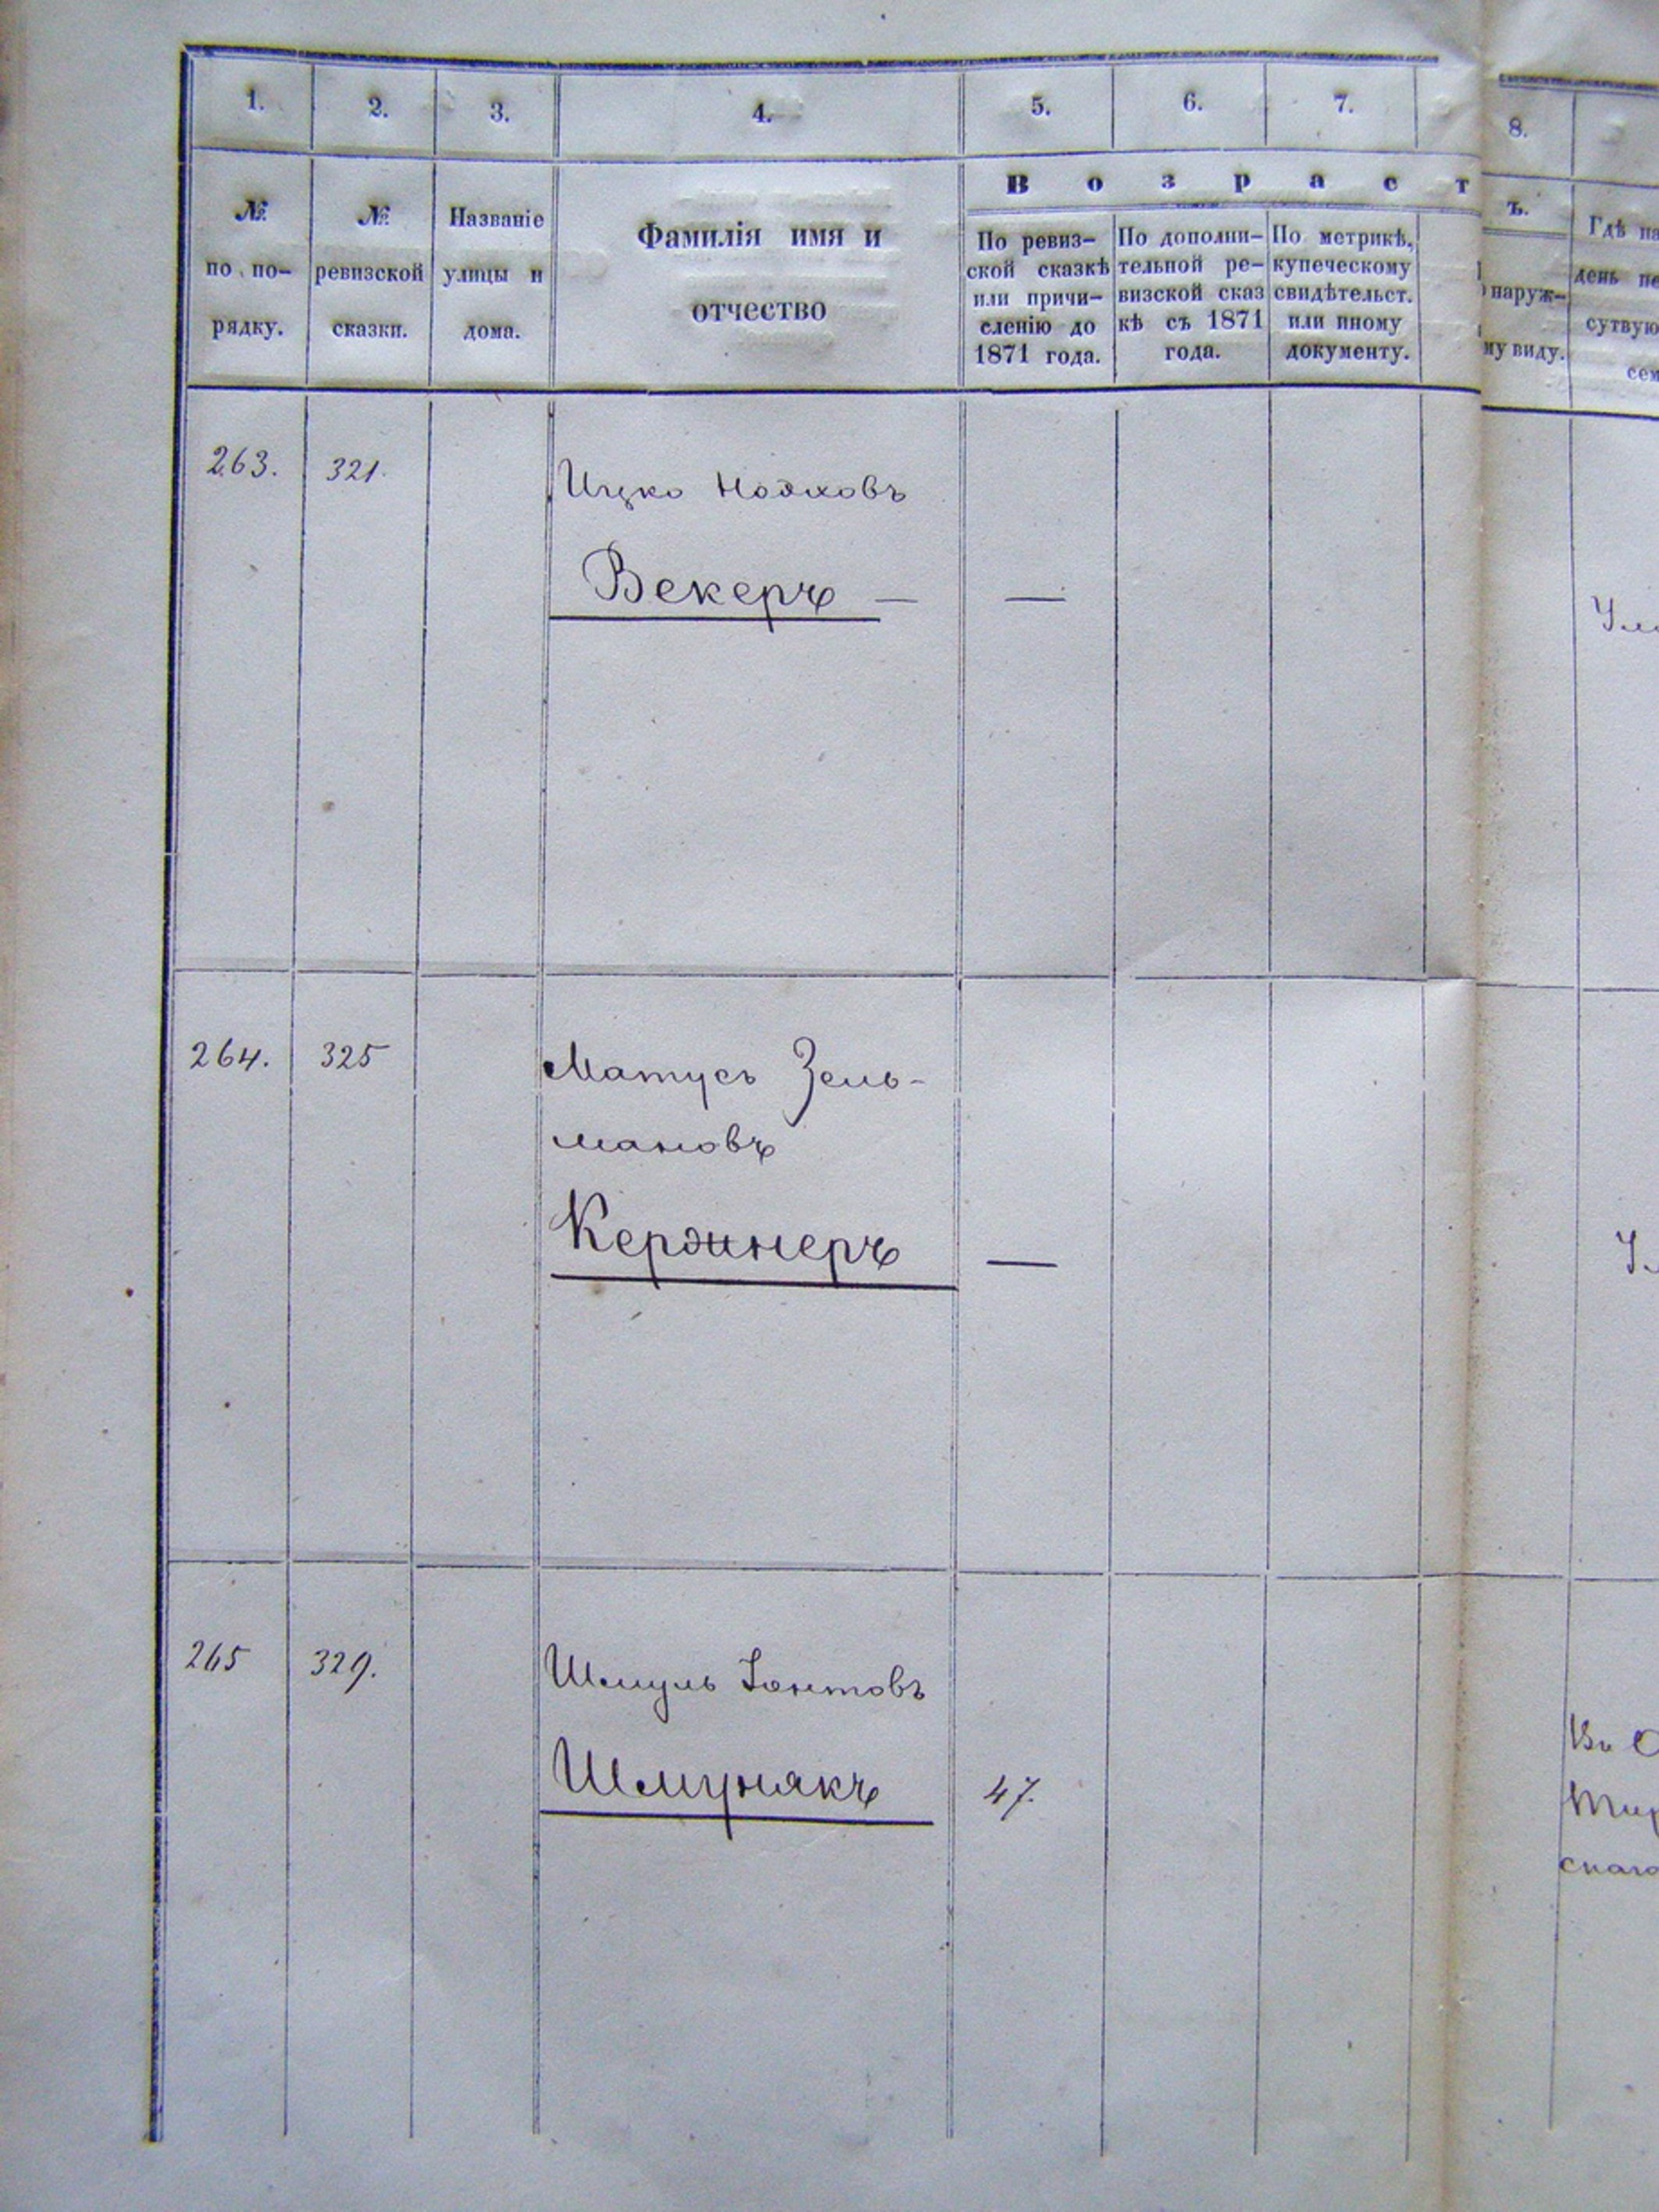 1. 2. 3. 4. 5. 6. 7. 8.
В о з р а с т ъ.
№ по по-
рядку.
№ ревизской
сказки.
Названіе
улицы и
дома.
Фамилія имя и
отчество
По ревиз-
ской сказкѣ
или причи-
сленію до
1871 года.
По дополни-
тельной ре-
визской сказ
кѣ съ 1871
года.
По метрикѣ,
купеческому
свидѣтельст.
или иному
документу.
наруж-
му виду.
Гдѣ на
день пе
сутвую
сем
263. 321. Ицко
Векеръ — —
264. 325 Матусъ Зель-
мановъ
Кердинеръ —
265 329. Шмуль Іонтовъ
Шмунякъ 47.
Въ